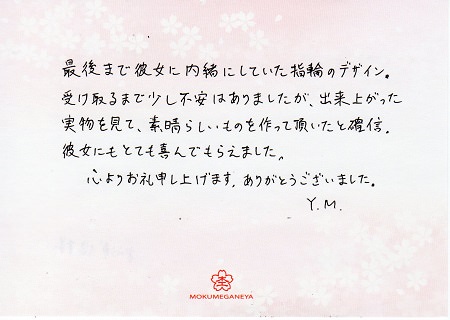 最後まで彼女に内緒にしていた指輪のデザイン。
受け取るまで少し不安はありましたが、出来上がった
実物を見て、素晴らしいものを作って頂いたと確信。
彼女にもとても喜んでもらえました。
心よりお礼申し上げます。ありがとうございました。
Y.M.
MOKUMEGANEYA